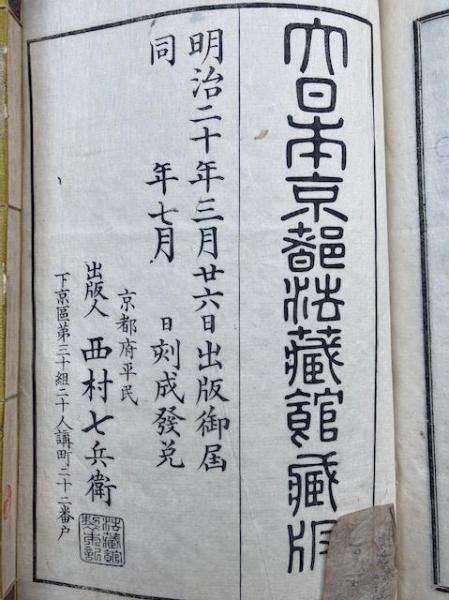 大日本京都法藏館藏版
明治二十年三月廿六日出版御屆
同　年七月　日刻成發兌
京都府平民
出版人　西村七兵衛
下京區第三十組二十人講町二十二番戸
法藏館